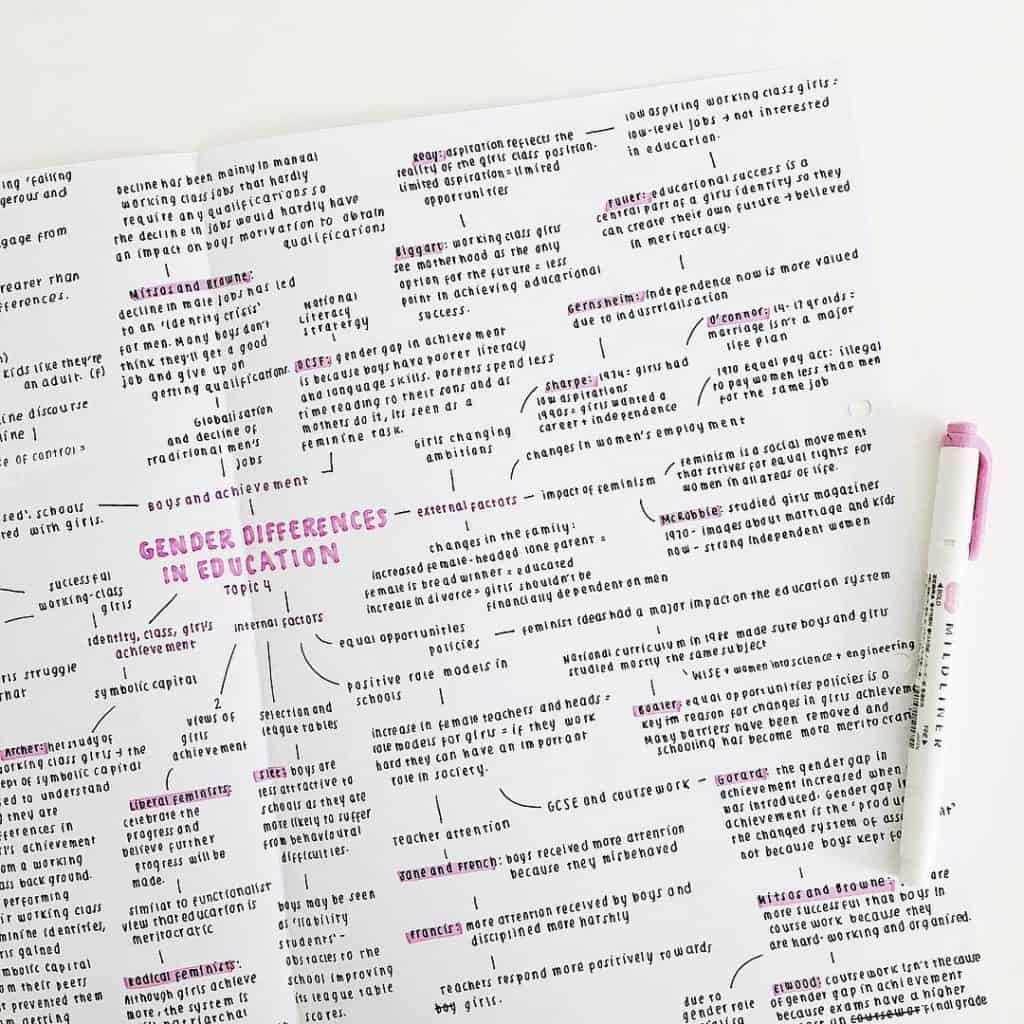 ing 'failing
gerous and
gage from
reater than
fferences.
kids like they're
an adult. (f)
ine discourse
ine )
e of control =
sed'. schools
red with girls.
Decline has been mainly in manual
working class jobs that hardly
require any qualifications so
the decline in jobs would hardly have
an impact on boys motivation to obtain
qualifications
Mitsos and Browne:
decline in male jobs has led
to an 'identity crisis'
for men. Many boys don't
think they'll get a good
job and give up on
getting qualifications.
Globalisation
and decline of
traditional men's
jobs
National
Literacy
stratergy
DCSF: gender gap in achievement
is because boys have poorer literacy
and language skills. Parents spend less
time reading to their sons and as
mothers do it, its seen as a
feminine task.
Boys and achievement
Reay: aspiration reflects the
reality of the girls class position.
limited aspiration = limited
opportunities
low aspiring working class girls =
low-level jobs → not interested
in education.
Biggart: working class girls
see motherhood as the only
option for the future = less
point in achieving educational
success.
Fuller: educational success is a
central part of a girls identity so they
can create their own future → believed
in meritocracy.
Gernsheim: Independence now is more valued
due to industrialisation
O'connor: 14-17 yr olds =
marriage isn't a major
life plan
Sharpe: 1974 = girls had
low aspirations
1990s = girls wanted a
career + independence
1970 Equal pay act: illegal
to pay women less than men
for the same job
Girls changing
ambitions
changes in women's employment
external factors
impact of feminism
feminism is a social movement
that strives for equal rights for
women in all areas of life.
McRobbie: studied girls magazines
1970 - images about marriage and kids
now - strong independent women
GENDER DIFFERENCES
IN EDUCATION
Topic 4
changes in the family:
increased female-headed lone parent =
female is bread winner = educated
increase in divorce = girls shouldn't be
financially dependent on men
successful
working-class
girls
identity, class, girls
achievement
symbolic capital
rls struggle
hat
internal factors
equal opportunities
policies
feminist ideas had a major impact on the education system
National curriculum in 1988 made sure boys and girls
studied mostly the same subject
WISE + women into science + engineering
Boaler: equal opportunities policies is a
key im reason for changes in girls achievem
Many barriers have been removed and
schooling has become more meritocrati
positive role models in
schools
increase in female teachers and heads =
role models for girls = if they work
hard they can have an important
role in society.
GCSE and coursework
Gorard: the gender gap in
achievement increased when
was introduced. Gender gap in
achievement is the 'produ
the changed system of asse
not because boys kept fo
Mitsos and Browne: are
more successful than boys in
course work because they
are hard-working and organised.
Elwood: coursework isn't the cause
of gender gap in achievement
because exams have a higher
on coursewor final grade
due to
gender role
Teacher attention
Jane and French: boys received more attention
because they misbehaved
Francis: more attention received by boys and
disciplined more harshly
Teachers respond more positively towards
boy girls.
selection and
league tables
Slee: boys are
less attractive to
schools as they are
more likely to suffer
from behavioural
difficulties.
boys may be seen
as 'liability
students' -
obstacles to the
school improving
its league table
scores.
2
views of
girls
achievement
Liberal feminists:
celebrate the
progress and
believe further
progress will be
made.
similar to functionalist
view that education is
meritocratic
Radical feminists:
Although girls achieve
more, the system is
patriarchal
Archer: her study of
working class girls → the
ept of symbolic capital
sed to understand
they are
fferences in
r's achievement
om a working
ass background.
performing
ir working class
minine identities,
rls gained
mbolic capital
om their peers
t prevented them
om getting
MILDLINER